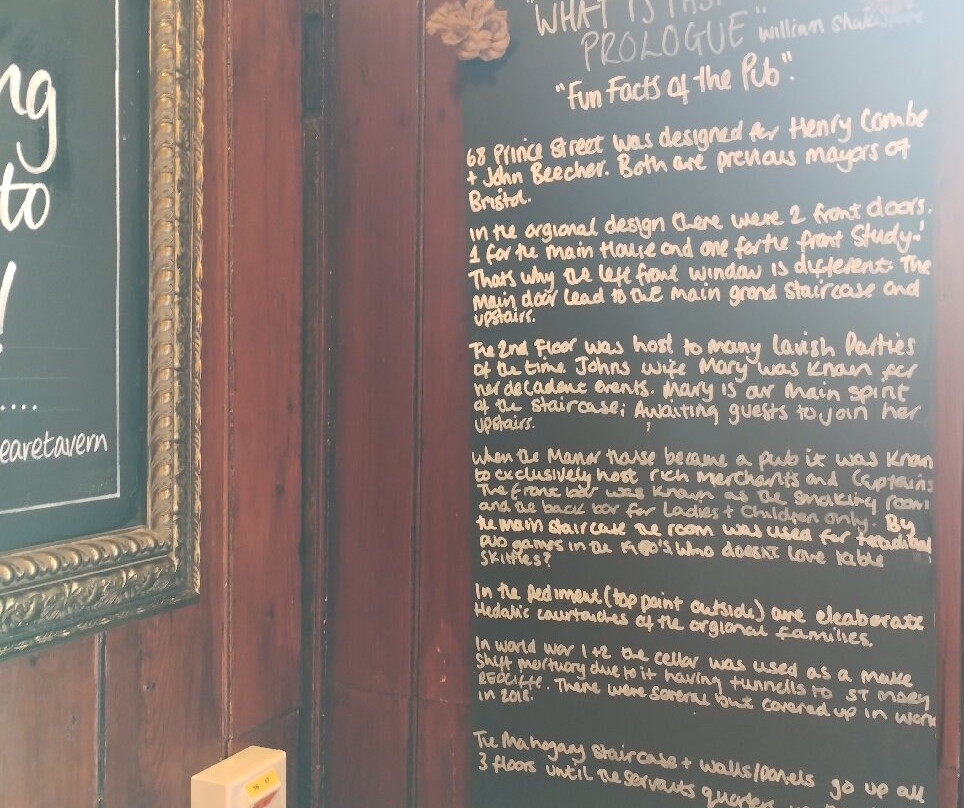 ng
to
!
....
earetavern
"WHAT IS PAST
PROLOGUE" william shakespere
"Fun Facts of the Pub".
68 Prince street was designed for Henry Combe
+ John Beecher. Both are previous Mayors of
Bristol.
In the orgional design there were 2 front doors.
1 for the main House and one for the front Study.
Thats why the left front window is different. The
Main door lead to the main grand staircase and
upstairs.
The 2nd Floor was host to many lavish Parties
of the time. Johns wife Mary was Known for
her decadent events. Mary is our main spirit
of the staircase; Awaiting guests to join her
upstairs.
When the Manor House became a pub it was Known
to exclusively host rich Merchants and Captains
The front bar was Known as the smoking room
and the back bar for Ladies + Children only. By
the main staircase the room was used for
pub games in the Who doesnt love table
skittles?
In the Pediment (top point outside) are eleaborate
of the orgional families.
In world war 1+2 the cellar was used as a make
shift mortuary due to it having tunnells to ST Mary
REDCLIFFE. There were several but covered up in work
in 2018.
The Mahogany staircase + walls/panels go up all
3 floors until the servants quarters